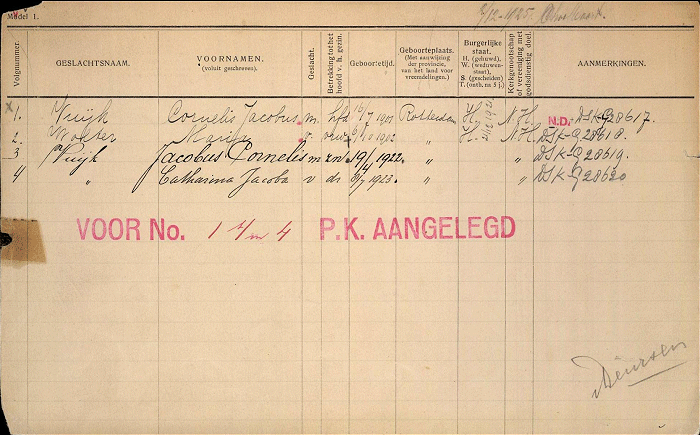 Model 1.
Volgnummer.
GESLACHTSNAAM.
VOORNAMEN.
(voluit geschreven).
Geslacht.
Betrekking tot het hoofd v. h. gezin.
Geboortetijd.
Geboorteplaats.
(Met aanwijzing der provincie, van het land voor vreemdelingen.)
Burgerlijke staat.
H. (gehuwd), W. (weduwenstaat), S. (gescheiden) T. (ontb. na 5 j.)
Kerkgenootschap of vereeniging met godsdienstig doel.
AANMERKINGEN.
1. Vuijk Cornelis Jacobus m. hfd 16/7 1901 Rotterdam H. N.H. N.D. DSK-G28617.
2. Wolter Maria v. vrw " H. N.H. DSK-G28618.
3 Vuijk Jacobus Cornelis m zn 19/1 1922. " " DSK-G28619.
4 " Catharina Jacoba v dr 1923. " " DSK-G28620
VOOR No. 1 t/m 4 P.K. AANGELEGD